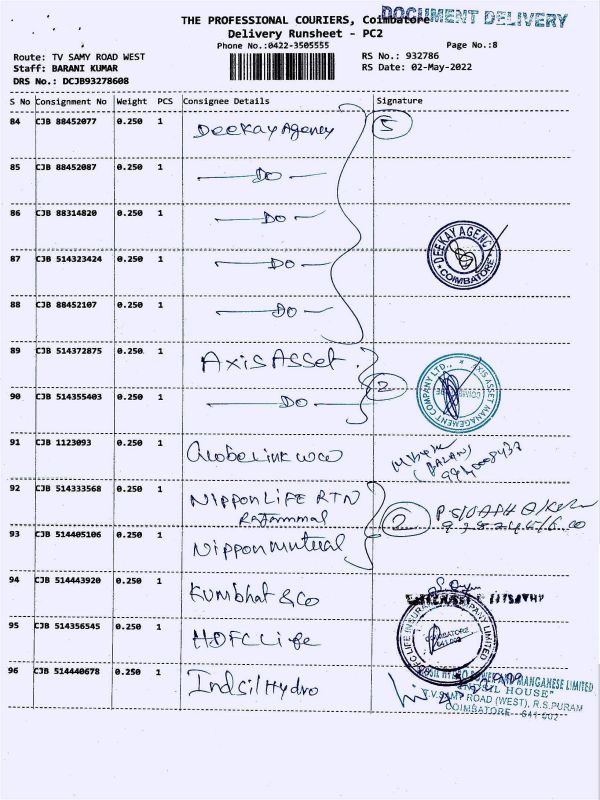 DOCUMENT DELIVERY
THE PROFESSIONAL COURIERS, Coimbatore
Delivery Runsheet - PC2
Phone No.:0422-3505555
Page No.:8
Route: TV SAMY ROAD WEST
RS No.: 932786
Staff: BARANI KUMAR
RS Date: 02-May-2022
DRS No.: DCJB93278608
S No Consignment No Weight PCS Consignee Details Signature
84 CJB 88452077 0.250 1 Deekay Agency 5
85 CJB 88452087 0.250 1 Do
86 CJB 88314820 0.250 1 Do
DEEKAY AGENCY
COIMBATORE
87 CJB 514323424 0.250 1 Do
88 CJB 88452107 0.250 1 Do
89 CJB 514372875 0.250 1 Axis Asset
2
AXIS ASSET MANAGEMENT COMPANY LTD.,
90 CJB 514355403 0.250 1 Do
91 CJB 1123093 0.250 1 Globelink WW
(BALAN)
92 CJB 514333568 0.250 1 Nippon Life RTN
Rajammal
2
93 CJB 514405106 0.250 1 Nippon mutual
94 CJB 514443920 0.250 1 Kumbhat & Co
95 CJB 514356545 0.250 1 HDFC Life
HDFC LIFE INSURANCE COMPANY LIMITED
COIMBATORE
641 002
96 CJB 514440678 0.250 1 Indsil Hydro
INDSIL HYDRO POWER AND MANGANESE LIMITED
"INDSIL HOUSE"
T.V.SAMY ROAD (WEST), R.S.PURAM
COIMBATORE - 641 002